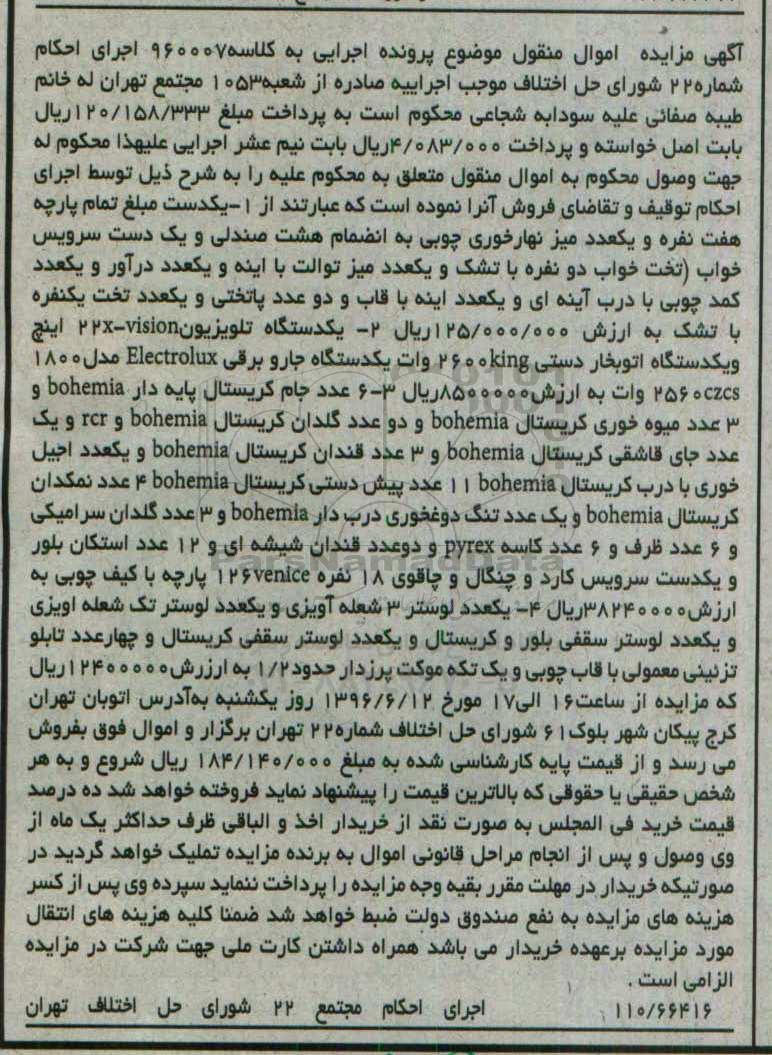 آگهی مزایده اموال منقول موضوع پرونده اجرایی به کلاسه۹۶۰۰۰۷ اجرای احکام
شماره۲۲ شورای حل اختلاف موجب اجراییه صادره از شعبه۱۰۵۳ مجتمع تهران له خانم
طیبه صفائی علیه سودابه شجاعی محکوم است به پرداخت مبلغ ۱۲۰/۱۵۸/۳۳۳ریال
بابت اصل خواسته و پرداخت ۴/۰۸۳/۰۰۰ریال بابت نیم عشر اجرایی علیهذا محکوم له
جهت وصول محکوم به اموال منقول متعلق به محکوم علیه را به شرح ذیل توسط اجرای
احکام توقیف و تقاضای فروش آنرا نموده است که عبارتند از ۱-یکدست مبلغ تمام پارچه
هفت نفره و یکعدد میز نهارخوری چوبی به انضمام هشت صندلی و یک دست سرویس
خواب (تخت خواب دو نفره با تشک و یکعدد میز توالت با اینه و یکعدد درآور و یکعدد
کمد چوبی با درب آینه ای و یکعدد اینه با قاب و دو عدد پاتختی و یکعدد تخت یکنفره
با تشک به ارزش ۱۲۵/۰۰۰/۰۰۰ریال ۲- یکدستگاه تلویزیون۲۲x-vision اینچ
ویکدستگاه اتوبخار دستی ۲۶۰۰king وات یکدستگاه جارو برقی Electrolux مدل۱۸۰۰
۲۵۶۰czcs وات به ارزش۸۵۰۰۰۰۰ریال ۳-۶ عدد جام کریستال پایه دار bohemia و
۳ عدد میوه خوری کریستال bohemia و دو عدد گلدان کریستال bohemia و rcr و یک
عدد جای قاشقی کریستال bohemia و ۳ عدد قندان کریستال bohemia و یکعدد اجیل
خوری با درب کریستال bohemia ۱۱ عدد پیش دستی کریستال bohemia ۴ عدد نمکدان
کریستال bohemia و یک عدد تنگ دوغخوری درب دار bohemia و ۳ عدد گلدان سرامیکی
و ۶ عدد ظرف و ۶ عدد کاسه pyrex و دوعدد قندان شیشه ای و ۱۲ عدد استکان بلور
و یکدست سرویس کارد و چنگال و چاقوی ۱۸ نفره ۱۲۶venice پارچه با کیف چوبی به
ارزش۳۸۲۴۰۰۰۰ریال ۴- یکعدد لوستر ۳ شعله آویزی و یکعدد لوستر تک شعله اویزی
و یکعدد لوستر سقفی بلور و کریستال و یکعدد لوستر سقفی کریستال و چهارعدد تابلو
تزئینی معمولی با قاب چوبی و یک تکه موکت پرزدار حدود۱/۲ به ارزرش۱۲۴۰۰۰۰۰ریال
که مزایده از ساعت۱۶ الی۱۷ مورخ ۱۳۹۶/۶/۱۲ روز یکشنبه به‌آدرس اتوبان تهران
کرج پیکان شهر بلوک۶۱ شورای حل اختلاف شماره۲۲ تهران برگزار و اموال فوق بفروش
می رسد و از قیمت پایه کارشناسی شده به مبلغ ۱۸۴/۱۴۰/۰۰۰ ریال شروع و به هر
شخص حقیقی یا حقوقی که بالاترین قیمت را پیشنهاد نماید فروخته خواهد شد ده درصد
قیمت خرید فی المجلس به صورت نقد از خریدار اخذ و الباقی ظرف حداکثر یک ماه از
وی وصول و پس از انجام مراحل قانونی اموال به برنده مزایده تملیک خواهد گردید در
صورتیکه خریدار در مهلت مقرر بقیه وجه مزایده را پرداخت ننماید سپرده وی پس از کسر
هزینه های مزایده به نفع صندوق دولت ضبط خواهد شد ضمنا کلیه هزینه های انتقال
مورد مزایده برعهده خریدار می باشد همراه داشتن کارت ملی جهت شرکت در مزایده
الزامی است .
۱۱۰/۶۶۴۱۶ اجرای احکام مجتمع ۲۲ شورای حل اختلاف تهران